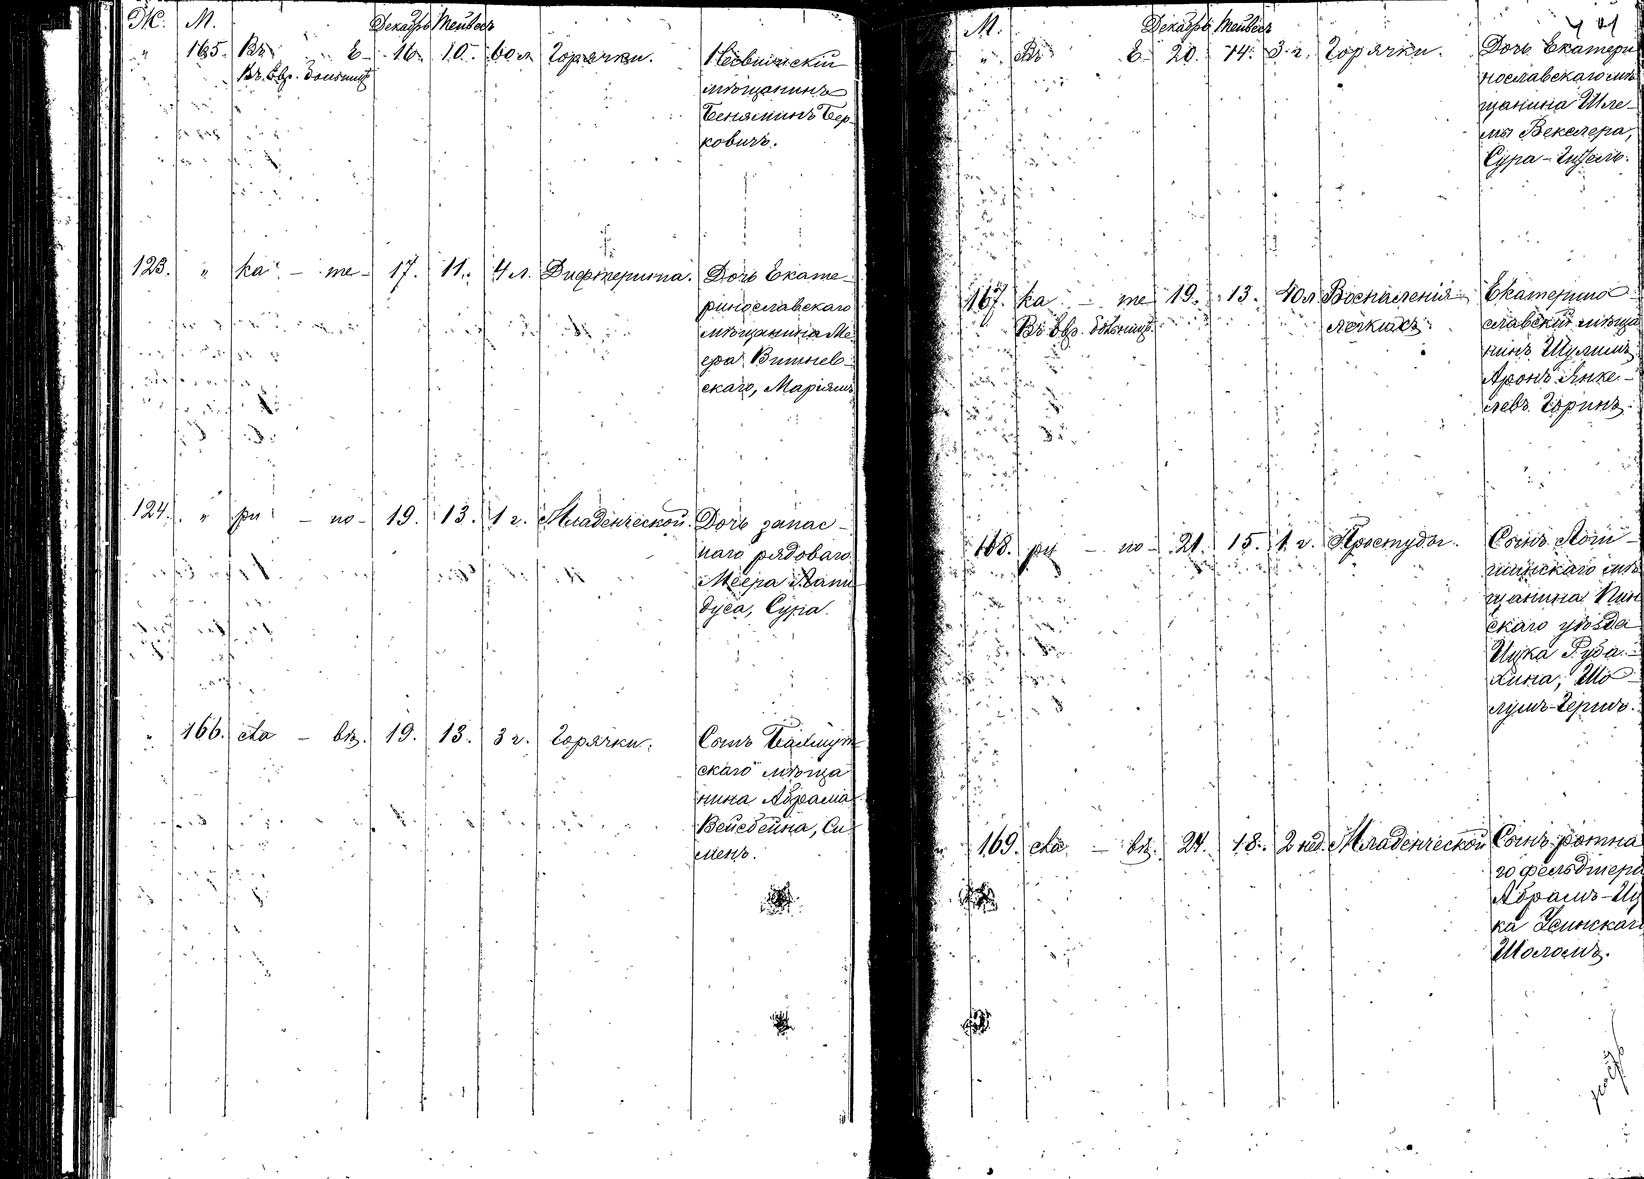 Ж. М. Декабрь Тейвесъ
" 165. Въ Е- 16. 10. 60 л. Горячки.
Въ евр. больницѣ
мѣщанинъ
Беняминъ Бер-
ковичъ.
123. " ка - те- 17. 11. 4 л. Дифтерита. Дочь Екате-
ринославскаго
мѣщанина Ме-
ера Вишнев-
скаго, Маріямъ
124. " ри - но- 19. 13. 1 г. Младенческой. Дочь запас-
наго рядоваго
Меера Лапи-
дуса, Сура.
" 166. сла - вѣ. 19. 13. 3 г. Горячки. Сынъ Бахмут-
скаго мѣща-
нина Абрама
Вейсбейна, Си-
менъ.
М. Декабрь Тейвесъ
" Въ Е- 20. 14. 3 г. Горячки. Дочь Екатери-
нославскаго мѣ-
щанина Шле-
мы Векслера,
Сура-Гитель.
167. ка - те- 19. 13. 40 л. Воспаленія Екатерино-
Въ евр. больницѣ. легкихъ. славскій мѣща-
нинъ Шулимъ
Аронъ Янке-
левъ Горинъ.
168. ри - но- 21. 15. 1 г. Простуды. Сынъ Логи-
шинскаго мѣ-
щанина Пин-
скаго уѣзда
Ицка Руба-
хина, Шо-
лумъ-Гершъ.
" 169. сла - вѣ. 24. 18. 2 нед. Младенческой Сынъ ротна-
го фельдшера
Абрамъ-Иц-
ка Усинскаго
Шоломъ.